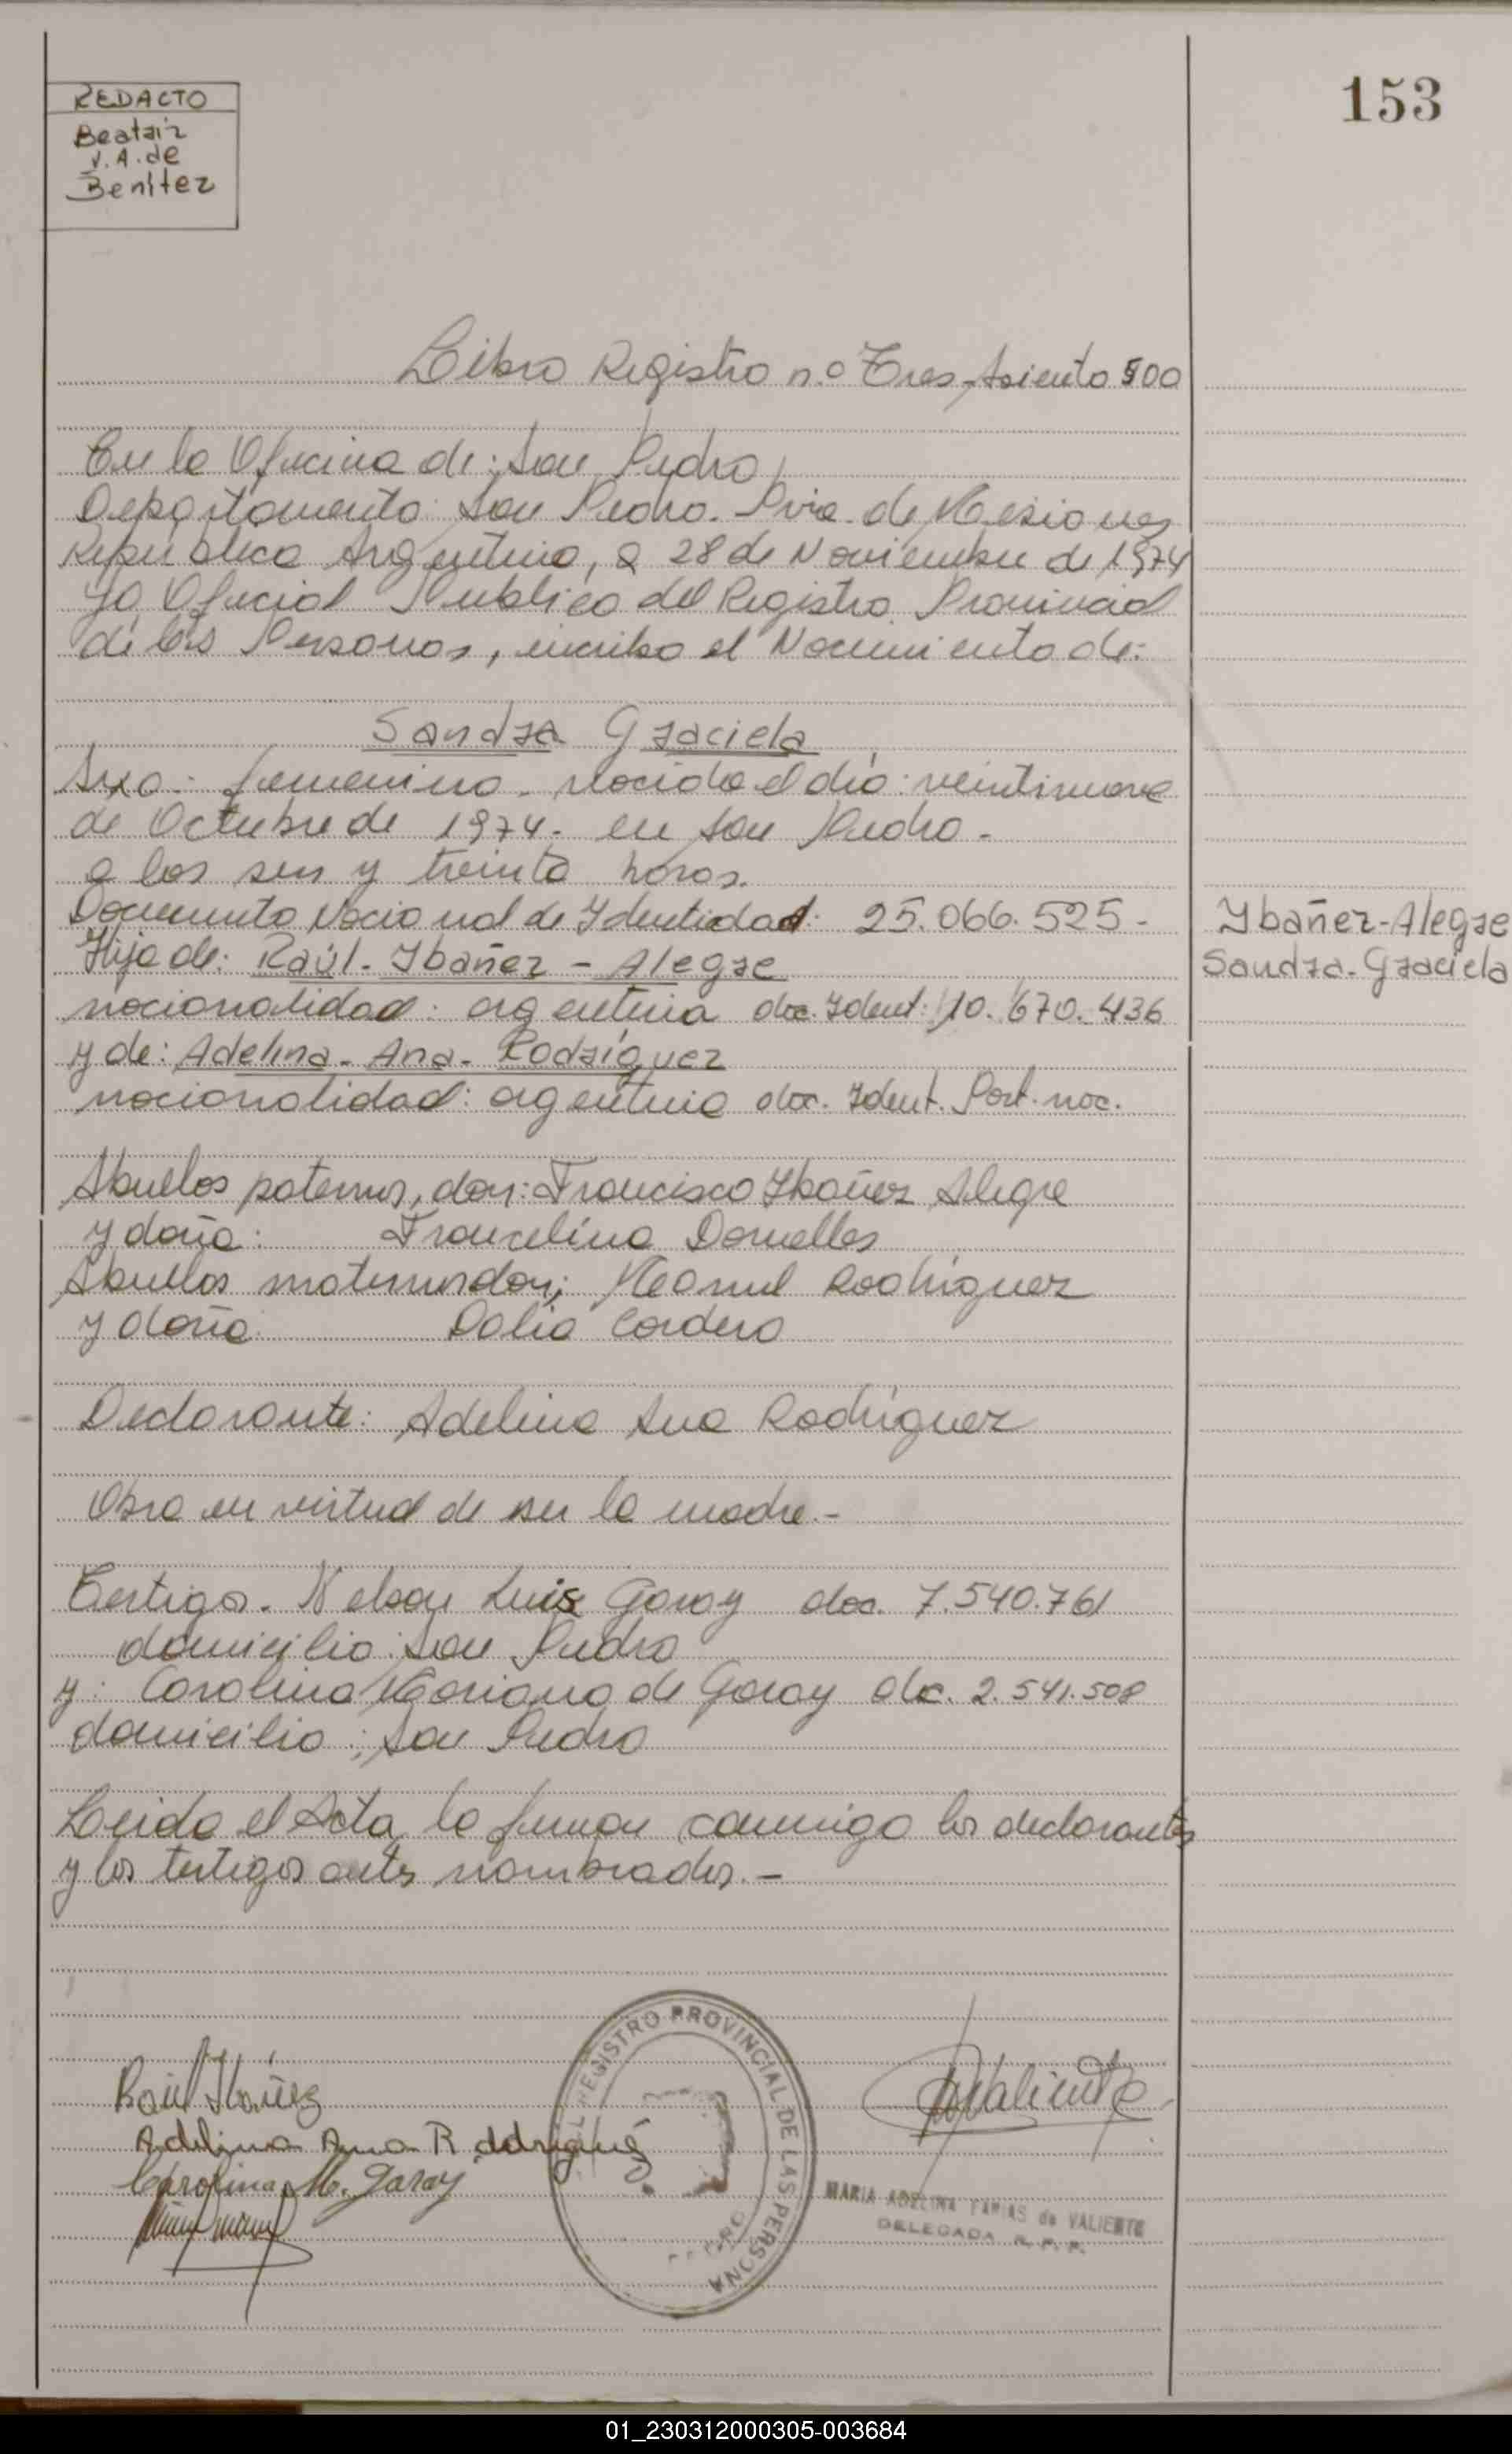 153
REDACTO
Beatriz
V. A. de
Benitez
Libro Registro n.º Tres, Asiento 500
En la Oficina de: San Pedro
Departamento: San Pedro. Pvia. de Misiones
República Argentina, a 28 de Noviembre de 1974
Yo Oficial Publico del Registro Provincial
de las Personas, inscribo el Nacimiento de:
Sandra Graciela
Sexo: femenino. nacida el día: veintinueve
de Octubre de 1974. en San Pedro.-
a las seis y treinta horas.
Documento Nacional de Identidad: 25.066.525-
Ybañez-Alegre
Sandra-Graciela
Hija de: Raúl-Ybañez-Alegre
nacionalidad: argentina doc. Ident: 10.670.436
y de: Adelina-Ana-Rodríguez
nacionalidad: argentina doc. Ident. Part. nac.
Abuelos paternos, don: Francisco Ybañez Alegre
y doña: Francelina Dornelles
Abuelos maternos don; Manuel Rodríguez
y doña: Dalia Cordero
Declarante: Adelina Ana Rodríguez
Obra en virtud de ser la madre.-
Testigos. Nelson Luis Garay doc. 7.540.761
domicilio: San Pedro
y: Carolina Mariano de Garay doc. 2.541.508
domicilio: San Pedro
Leida el Acta la firman conmigo los declarantes
y los testigos antes nombrados.-
Raúl Ibáñez
Adelina Ana Rodrigué
Carolina M. Garay
REGISTRO PROVINCIAL DE LAS PERSONA
Valiente
MARIA ADELINA FARIAS de VALIENTE
DELEGADA R. P. P.
01_230312000305-003684